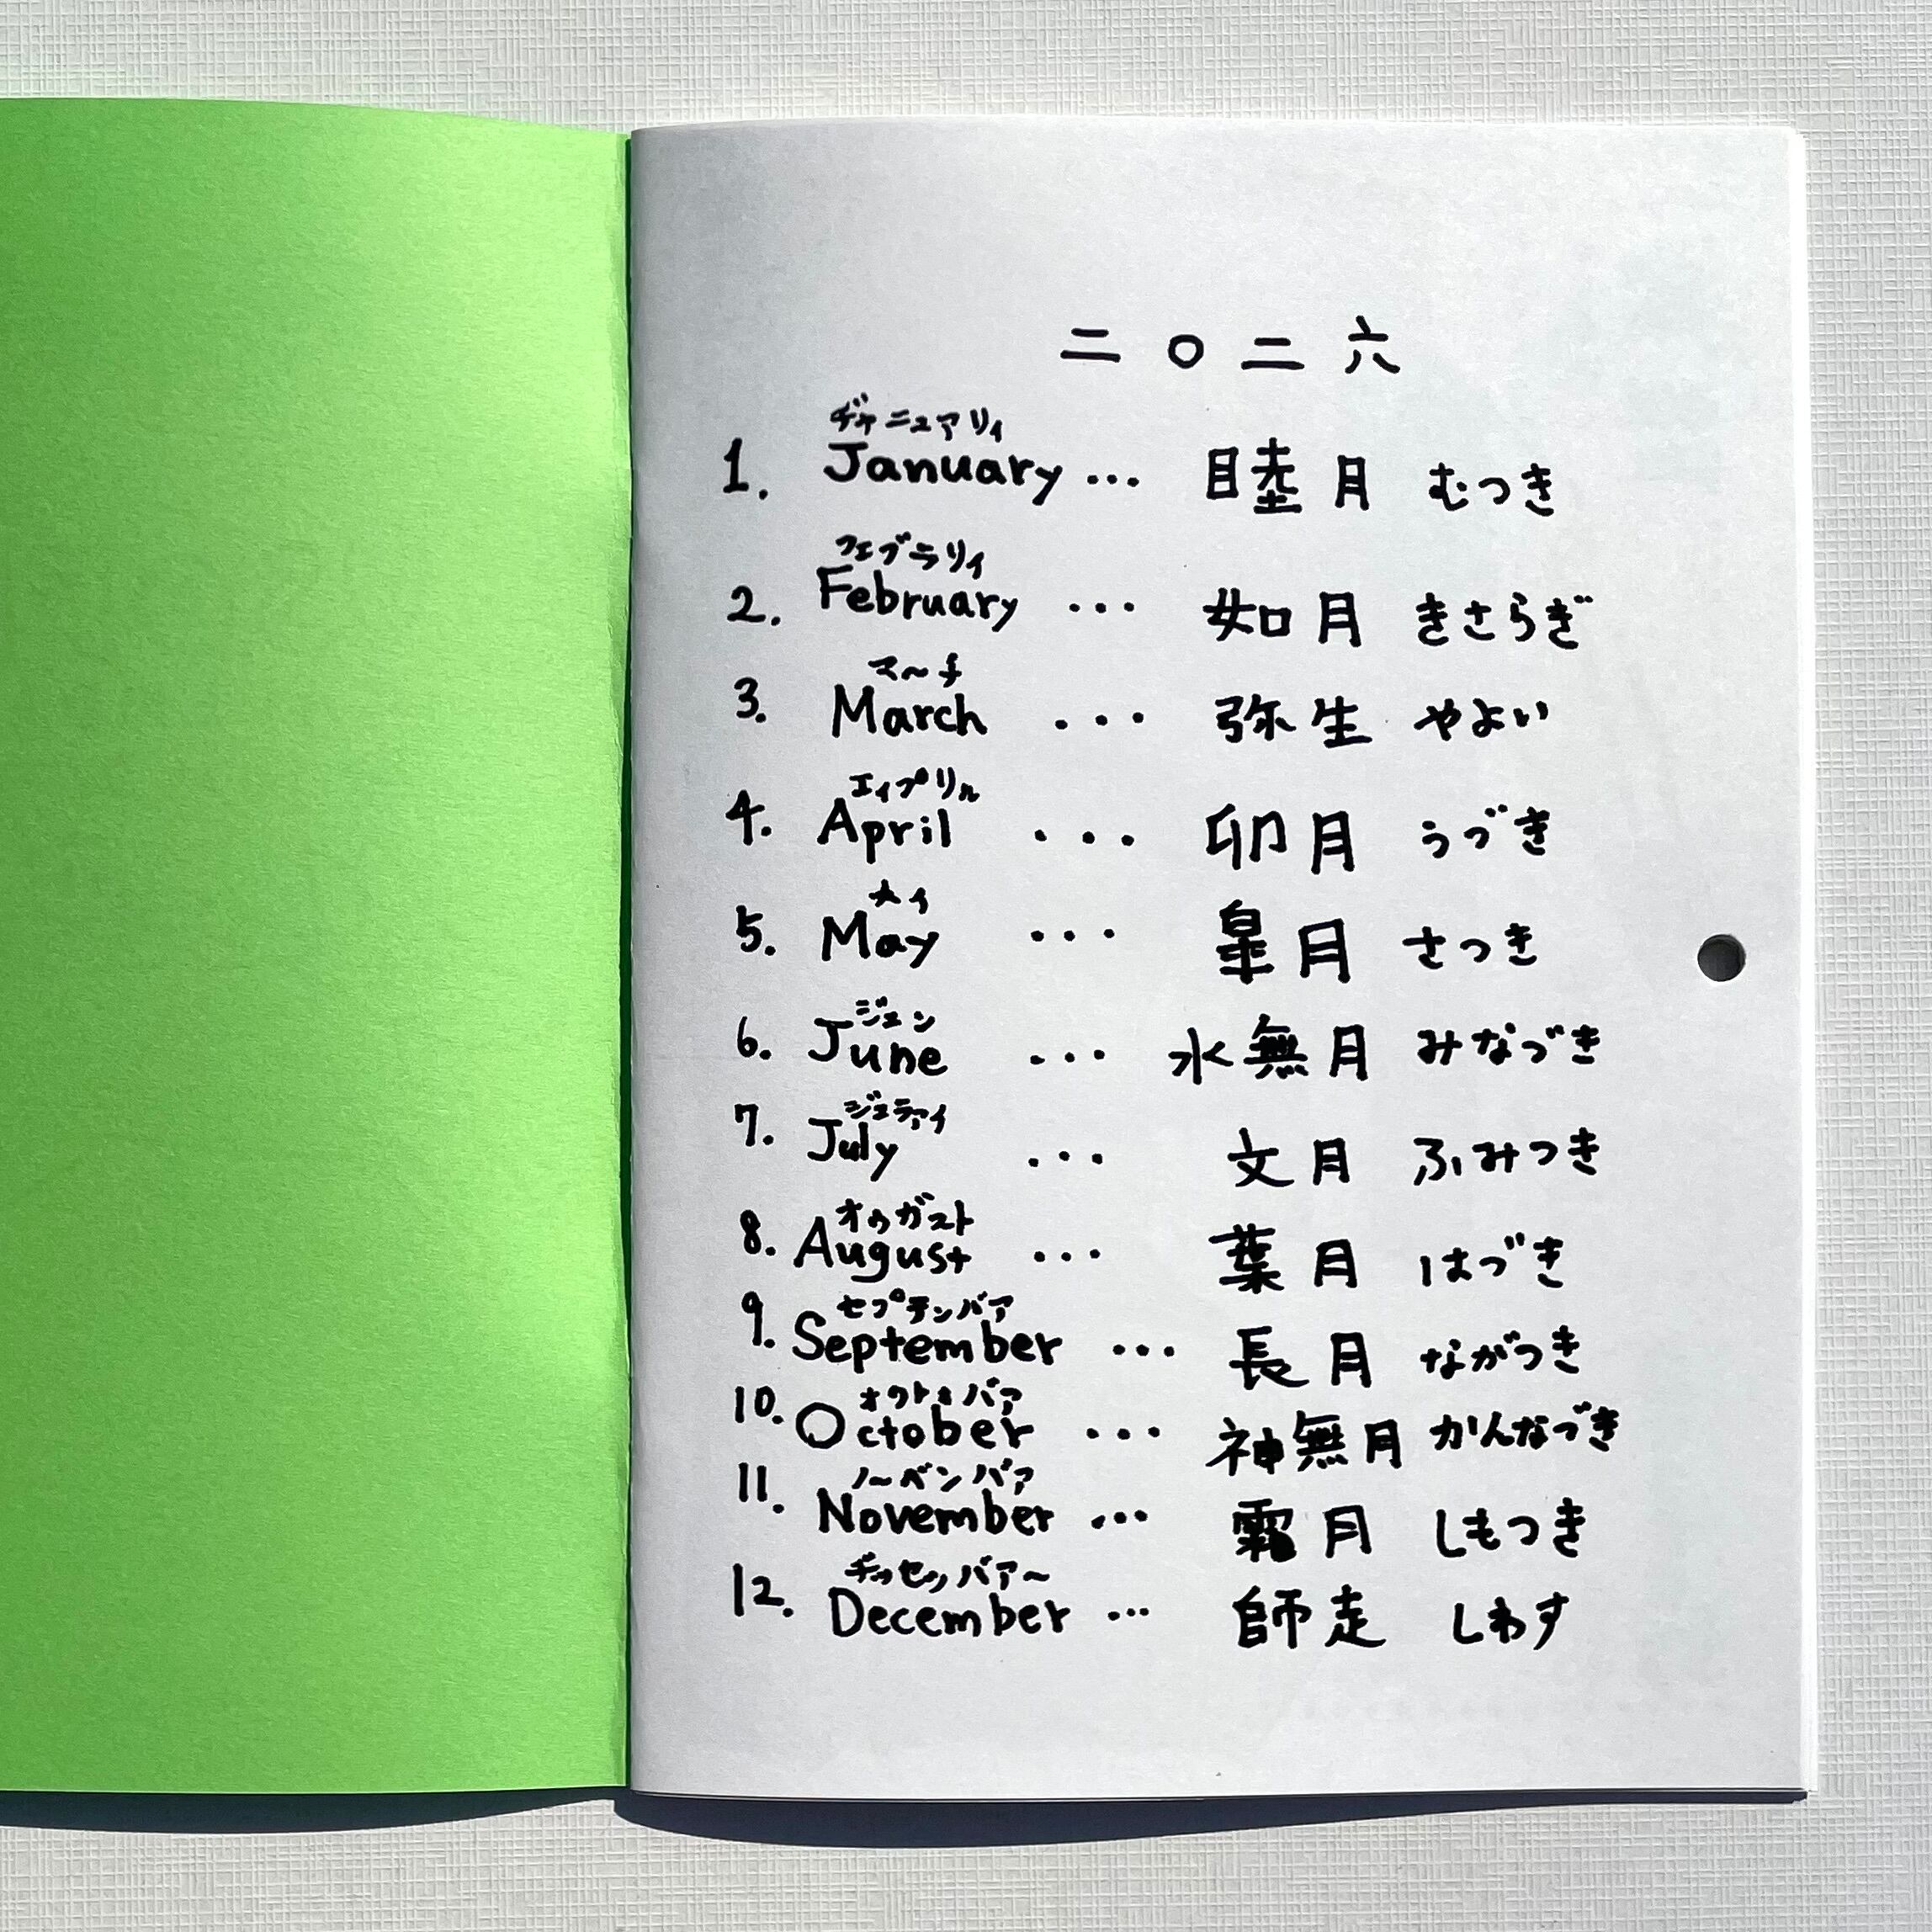 二〇二六
ヂャニュアリィ
1. January ... 睦月 むつき
フェブラリィ
2. February ... 如月 きさらぎ
マ〜チ
3. March ... 弥生 やよい
エィプリル
4. April ... 卯月 うづき
メイ
5. May ... 皐月 さつき
ジュン
6. June ... 水無月 みなづき
7. July ... 文月 ふみつき
オゥガスト
8. August ... 葉月 はづき
セプテンバア
9. September ... 長月 ながつき
10. October ... 神無月 かんなづき
ノーベンバァ
11. November ... 霜月 しもつき
12. December ... 師走 しわす